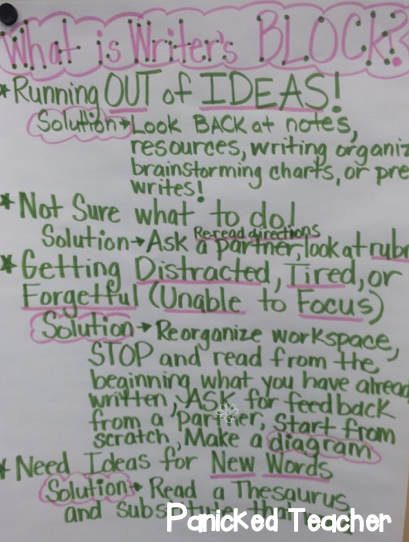 What is Writer's BLOCK?
* Running OUT of IDEAS!
Solution → Look BACK at notes,
resources, writing organiz
brainstorming charts, or pre
writes!
* Not Sure what to do!
Reread directions
Solution → Ask a partner, look at rubr
* Getting Distracted, Tired, or
Forgetful (Unable to Focus)
Solution → Reorganize workspace,
STOP and read from the
beginning what you have alread
written, ASK for feedback
from a partner, start from
scratch, Make a diagram
* Need Ideas for New Words
Solution → Read a Thesaurus
and
Panicked Teacher